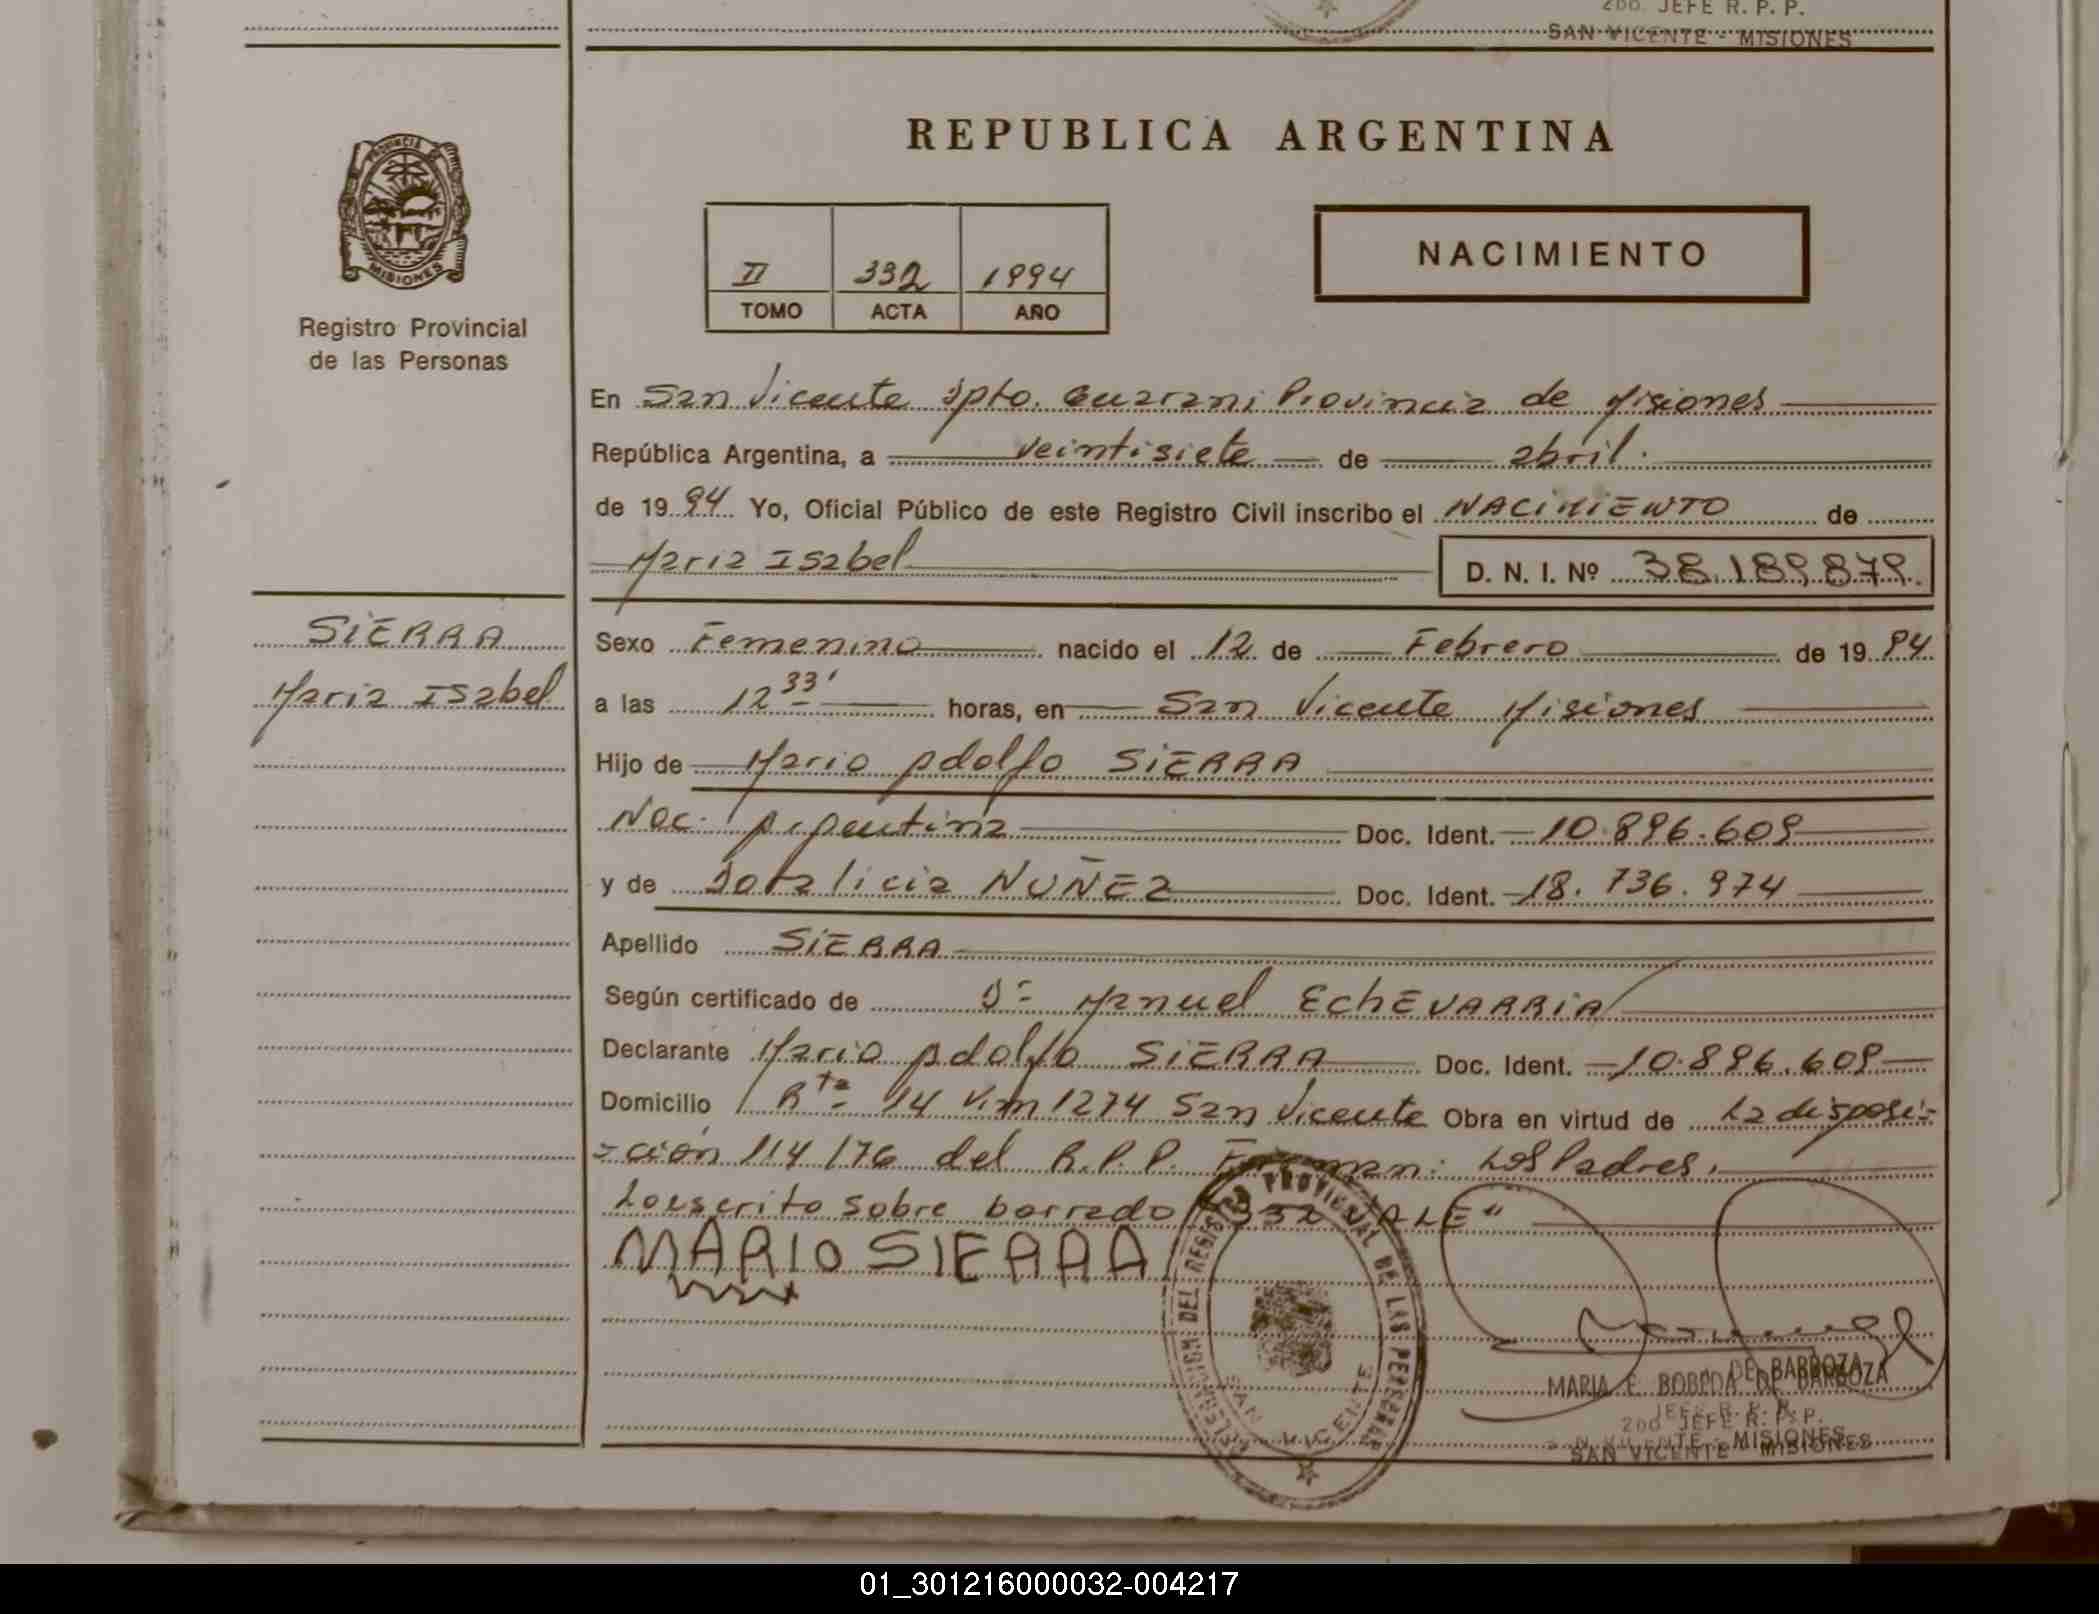 2DO. JEFE R. P. P.
SAN VICENTE - MISIONES
PROVINCIA DE
MISIONES
Registro Provincial
de las Personas
REPUBLICA ARGENTINA
II 332 1994
TOMO ACTA AÑO
NACIMIENTO
En San Vicente Dpto. Guarani Provincia de Misiones
República Argentina, a veintisiete de abril.
de 1994 Yo, Oficial Público de este Registro Civil inscribo el NACIMIENTO de
Maria Isabel D. N. I. Nº 38.189.879.
SIERRA
Maria Isabel
Sexo Femenino nacido el 12 de Febrero de 1994
a las 12 33' horas, en San Vicente Misiones
Hijo de Mario Adolfo SIERRA
Nac. Argentina Doc. Ident. 10.896.609
y de Doralicia NUÑEZ Doc. Ident. 18.736.974
Apellido SIERRA
Según certificado de Dr Manuel EchEVARRIA
Declarante Mario Adolfo SIERRA Doc. Ident. 10.896.609
Domicilio Rta 14 Km 1274 San Vicente Obra en virtud de la disposi-
-ción 114/76 del R.P.P. Firman: Los Padres.
Lo escrito sobre borrado "332 VALE"
MARIO SIERRA
DELEGACION DEL REGISTRO PROVINCIAL DE LAS PERSONAS
SAN VICENTE
MARIA E. BOBEDA DE BARBOZA
2DO JEFE R. P. P.
SAN VICENTE - MISIONES
01_301216000032-004217